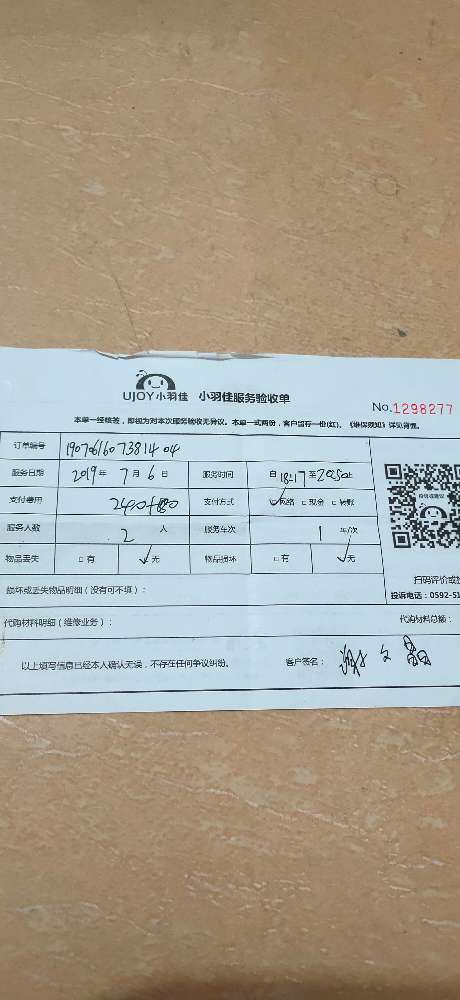 UJOY小羽佳 小羽佳服务验收单
No.1298277
本单一经核签，即视为对本次服务验收无异议。本单一式两份，客户留存一份(红)。《维保须知》详见背面。
订单编号 1907061607381404
服务日期 2019年 7月 6日 服务时间 自 18:17 至 20:50止
支付费用 240+80 支付方式 ☑网络 □现金 □转账
服务人数 2 人 服务车次 1 车/次
物品丢失 □有 ☑无 物品损坏 □有 ☑无
损坏或丢失物品明细（没有可不填）：
扫码评价或投
投诉电话：0592-51
代购材料明细（维修业务）： 代购材料总额：
以上填写信息已经本人确认无误，不存在任何争议纠纷。 客户签名：